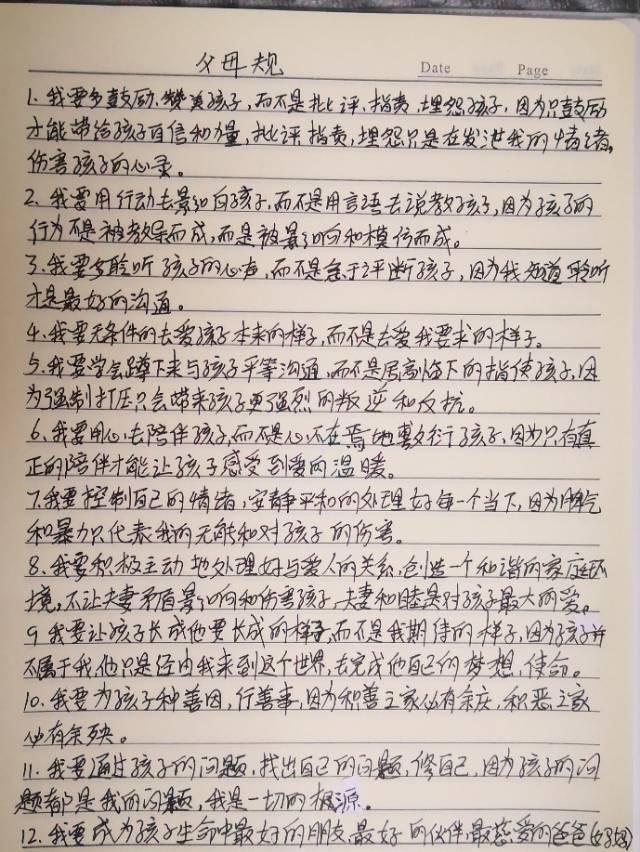 父母规
Date
Page
1. 我要多鼓励、赞美孩子，而不是批评、指责、埋怨孩子，因为只鼓励
才能带给孩子自信和力量，批评、指责，埋怨只是在发泄我的情绪，
伤害孩子的心灵。
2. 我要用行动去影响孩子，而不是用言语去说教孩子，因为孩子的
行为不是被教导而成，而是被影响和模仿而成。
3. 我要多聆听孩子的心声，而不是急于评断孩子，因为我知道聆听
才是最好的沟通。
4. 我要无条件的去爱孩子本来的样子，而不是去爱我要求的样子。
5. 我要学会蹲下来与孩子平等沟通，而不是居高临下的指使孩子，因
为强制打压只会带来孩子更强烈的叛逆和反抗。
6. 我要用心去陪伴孩子，而不是心不在焉地敷衍孩子，因为只有真
正的陪伴才能让孩子感受到爱的温暖。
7. 我要控制自己的情绪，安静平和的处理好每一个当下，因为脾气
和暴力只代表我的无能和对孩子的伤害。
8. 我要积极主动地处理好与爱人的关系，创造一个和谐的家庭环
境，不让夫妻矛盾影响和伤害孩子，夫妻和睦是对孩子最大的爱。
9 我要让孩子长成他要长成的样子，而不是我期待的样子，因为孩子并
不属于我，他只是经由我来到这个世界，去完成他自己的梦想、使命。
10. 我要为孩子种善因，行善事，因为积善之家必有余庆，积恶之家
必有余殃。
11. 我要通过孩子的问题，找出自己的问题，修自己，因为孩子的问
题都是我的问题，我是一切的根源。
12. 我要成为孩子生命中最好的朋友，最好的伙伴，最慈爱的爸爸(妈妈)